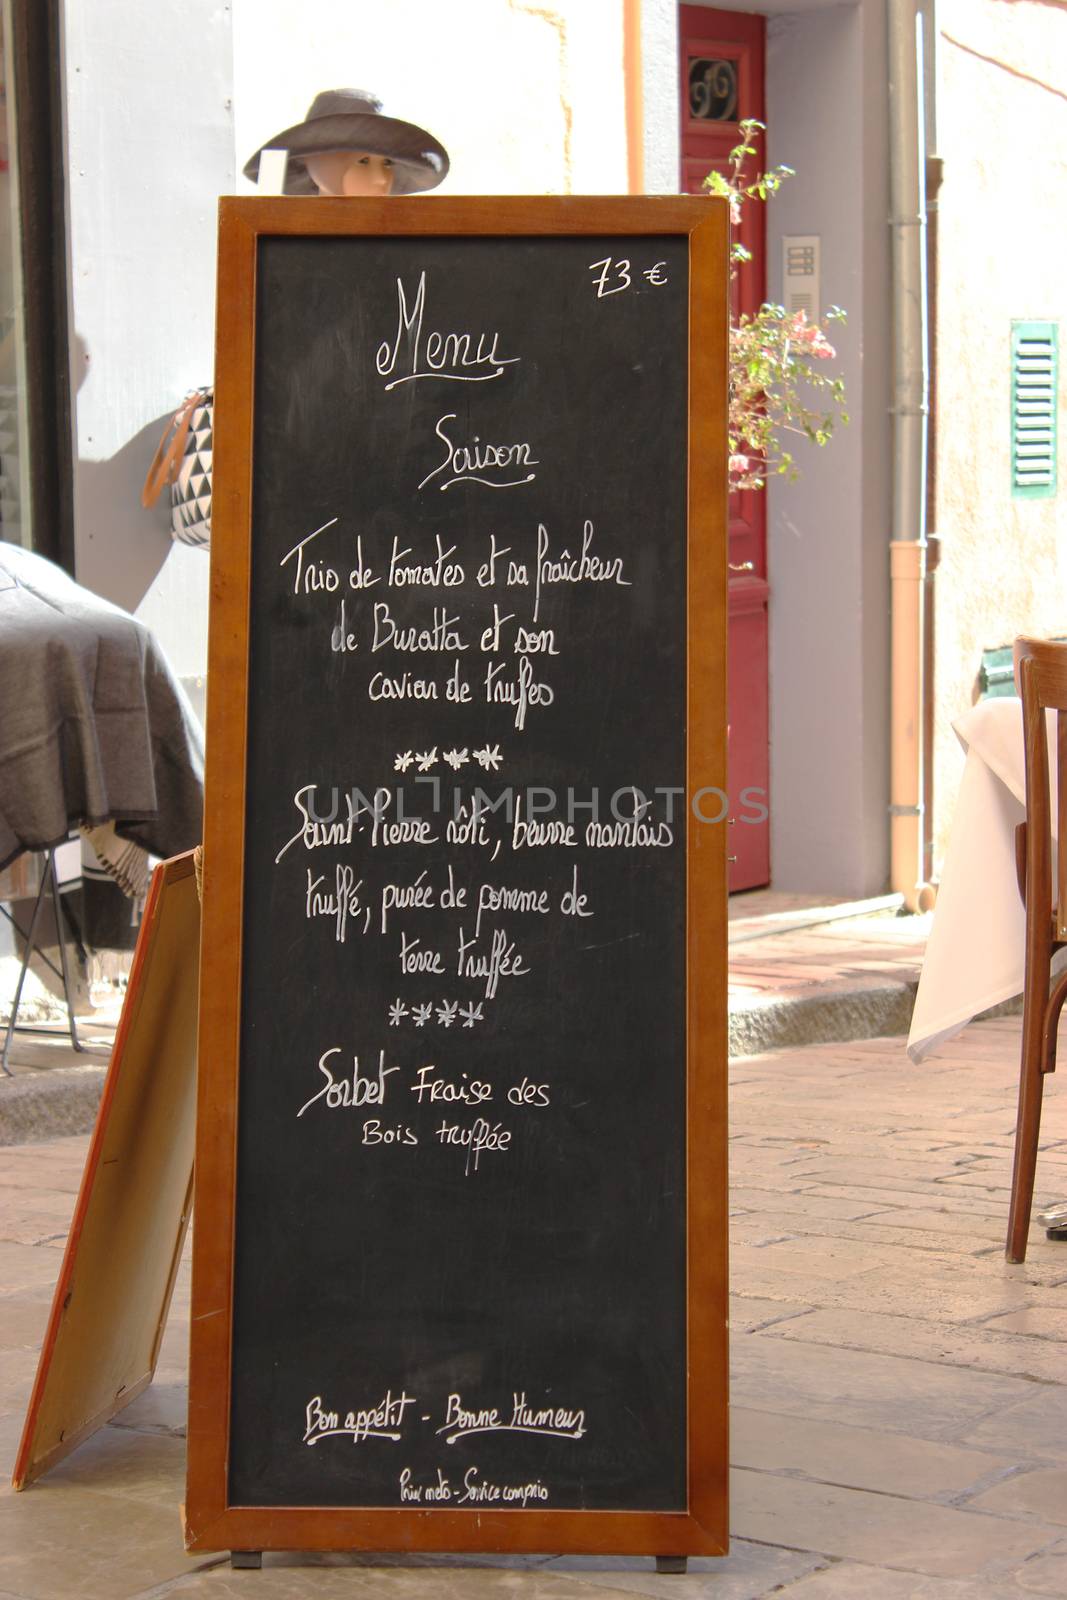 73 €
Menu
Saison
Trio de tomates et sa fraîcheur
de Buratta et son
caviar de truffes
****
Saint-Pierre rôti, beurre nantais
truffé, purée de pomme de
terre truffée
****
Sorbet Fraise des
Bois truffée
Bon appétit - Bonne Humeur
Prix nets - Service compris
UNLIMPHOTOS